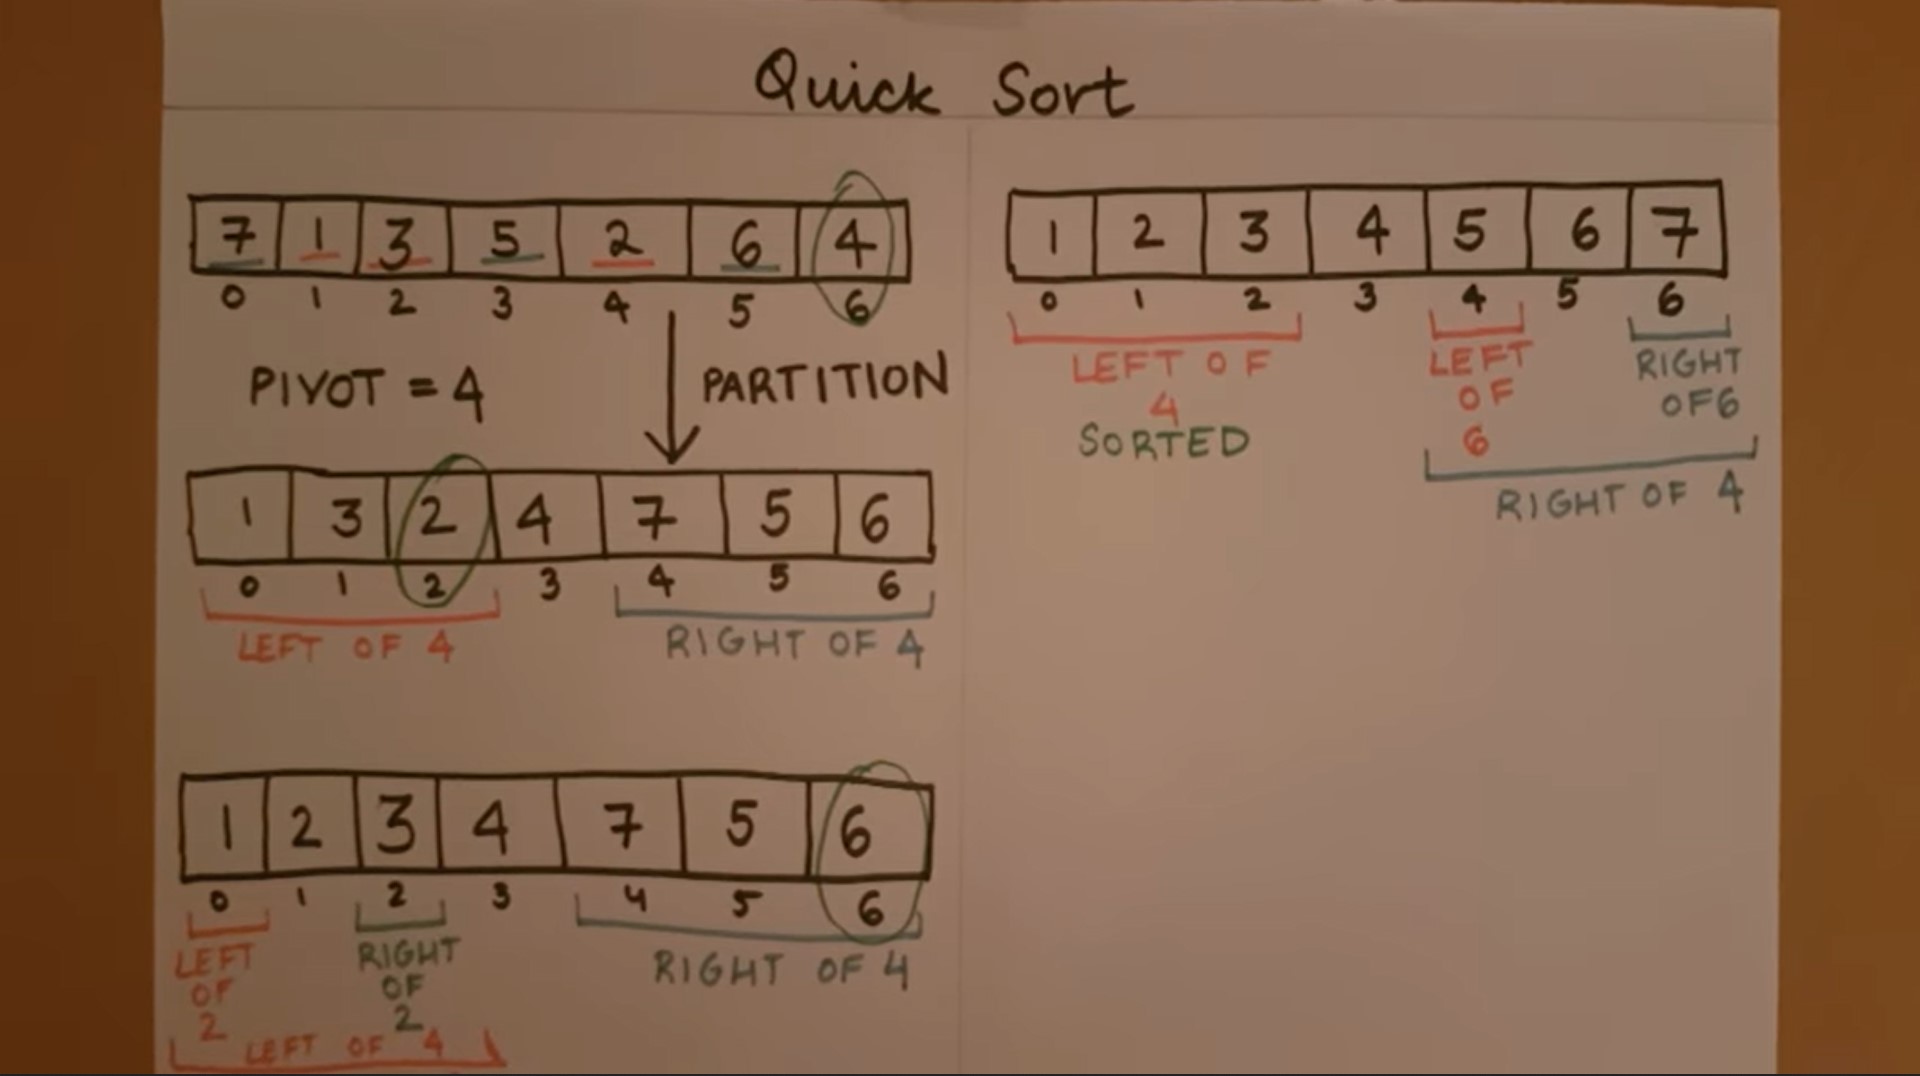 Quick Sort
7 1 3 5 2 6 4
0 1 2 3 4 5 6
PIVOT = 4
PARTITION
1 3 2 4 7 5 6
0 1 2 3 4 5 6
LEFT OF 4
RIGHT OF 4
1 2 3 4 7 5 6
0 1 2 3 4 5 6
LEFT
OF
2
RIGHT
OF
2
RIGHT OF 4
LEFT OF 4
1 2 3 4 5 6 7
0 1 2 3 4 5 6
LEFT OF
4
SORTED
LEFT
OF
6
RIGHT
OF6
RIGHT OF 4